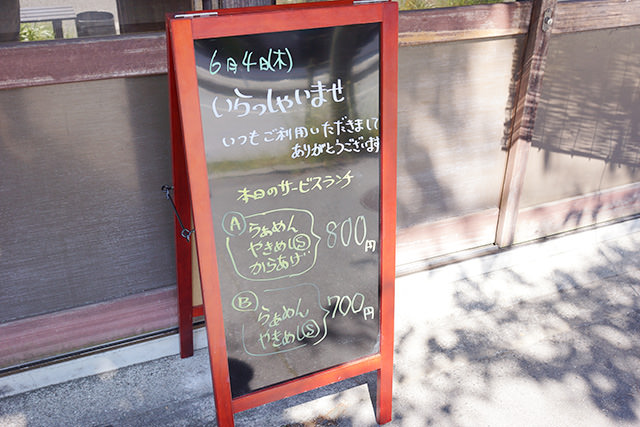 6月4日(木)
いらっしゃいませ
いつもご利用いただきまして
ありがとうございます
本日のサービスランチ
Ⓐ らぁめん
やきめしⓈ
からあげ
800円
Ⓑ らぁめん
やきめしⓈ
700円